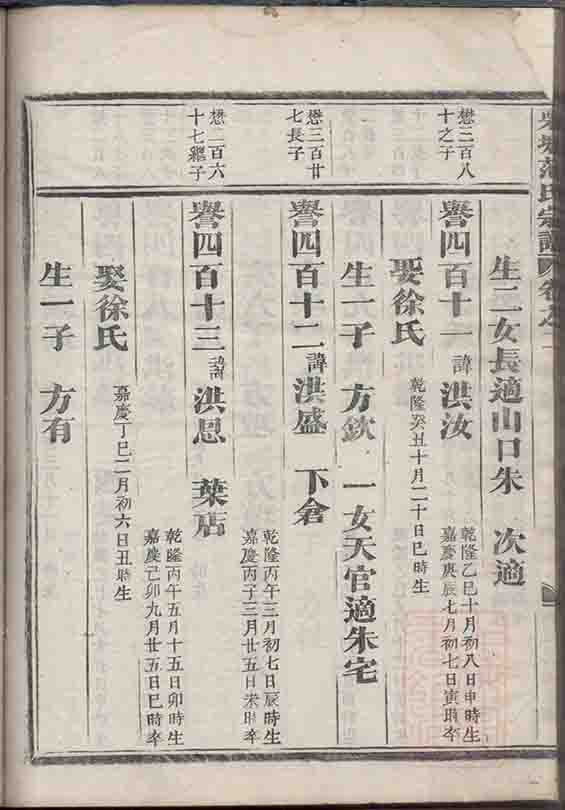 范氏宗譜
生二女長適山口朱 次適
懋三百八
十之子
譽四百十一諱洪汝
乾隆乙巳十月初八日申時生
嘉慶庚辰七月初七日寅時卒
娶徐氏
乾隆癸丑十月二十日巳時生
生一子 方欽 一女天官適朱宅
懋三百廿
七長子
譽四百十二諱洪盛 下倉
乾隆丙午三月初七日辰時生
嘉慶丙子三月廿五日未時卒
懋二百六
十七繼子
譽四百十三諱洪恩 葉店
乾隆丙午五月十五日卯時生
嘉慶己卯九月廿五日巳時卒
娶徐氏
嘉慶丁巳二月初六日丑時生
生一子 方有